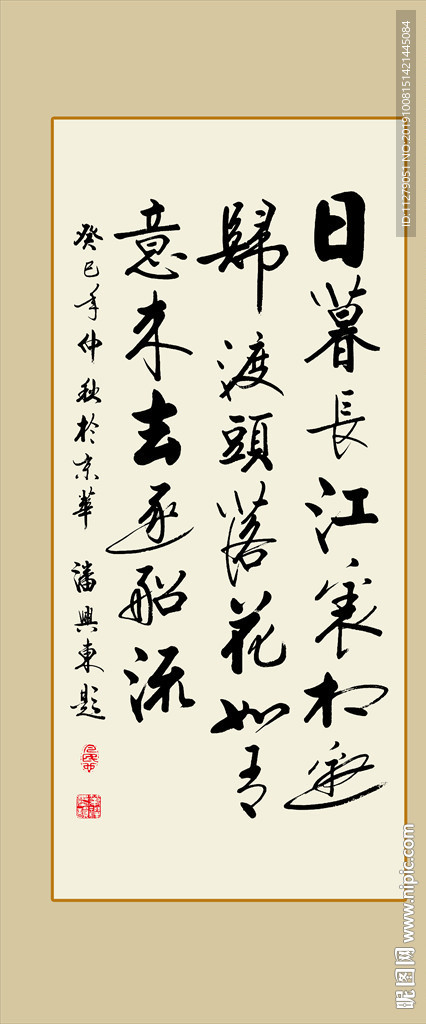 日暮長江裏相邀
歸渡頭落花如有
意来去逐船流
癸巳年仲秋於京華 潘興東題
ID:11279051 NO:20191008151421445084
昵图网 www.nipic.com